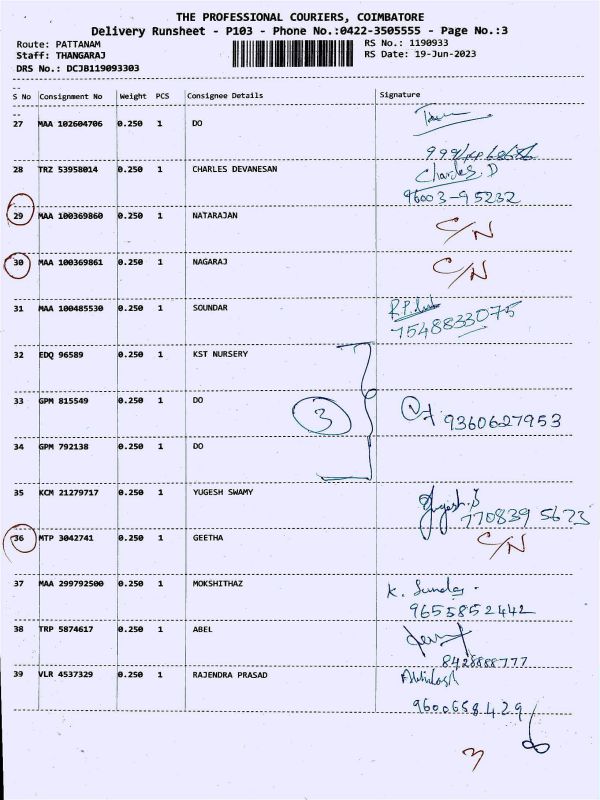 THE PROFESSIONAL COURIERS, COIMBATORE
Delivery Runsheet - P103 - Phone No.:0422-3505555 - Page No.:3
Route: PATTANAM RS No.: 1190933
Staff: THANGARAJ RS Date: 19-Jun-2023
DRS No.: DCJB119093303
S No Consignment No Weight PCS Consignee Details Signature
27 MAA 102604706 0.250 1 DO
28 TRZ 53958014 0.250 1 CHARLES DEVANESAN Charles. D
96003-95232
29 MAA 100369860 0.250 1 NATARAJAN C/N
30 MAA 100369861 0.250 1 NAGARAJ C/N
31 MAA 100485530 0.250 1 SOUNDAR
7548833075
32 EDQ 96589 0.250 1 KST NURSERY
33 GPM 815549 0.250 1 DO 3 9360627953
34 GPM 792138 0.250 1 DO
35 KCM 21279717 0.250 1 YUGESH SWAMY Yugesh.S
770839 5673
36 MTP 3042741 0.250 1 GEETHA C/N
37 MAA 299792500 0.250 1 MOKSHITHAZ K. Sundar
9655852442
38 TRP 5874617 0.250 1 ABEL
8428888777
39 VLR 4537329 0.250 1 RAJENDRA PRASAD
9600658429
3